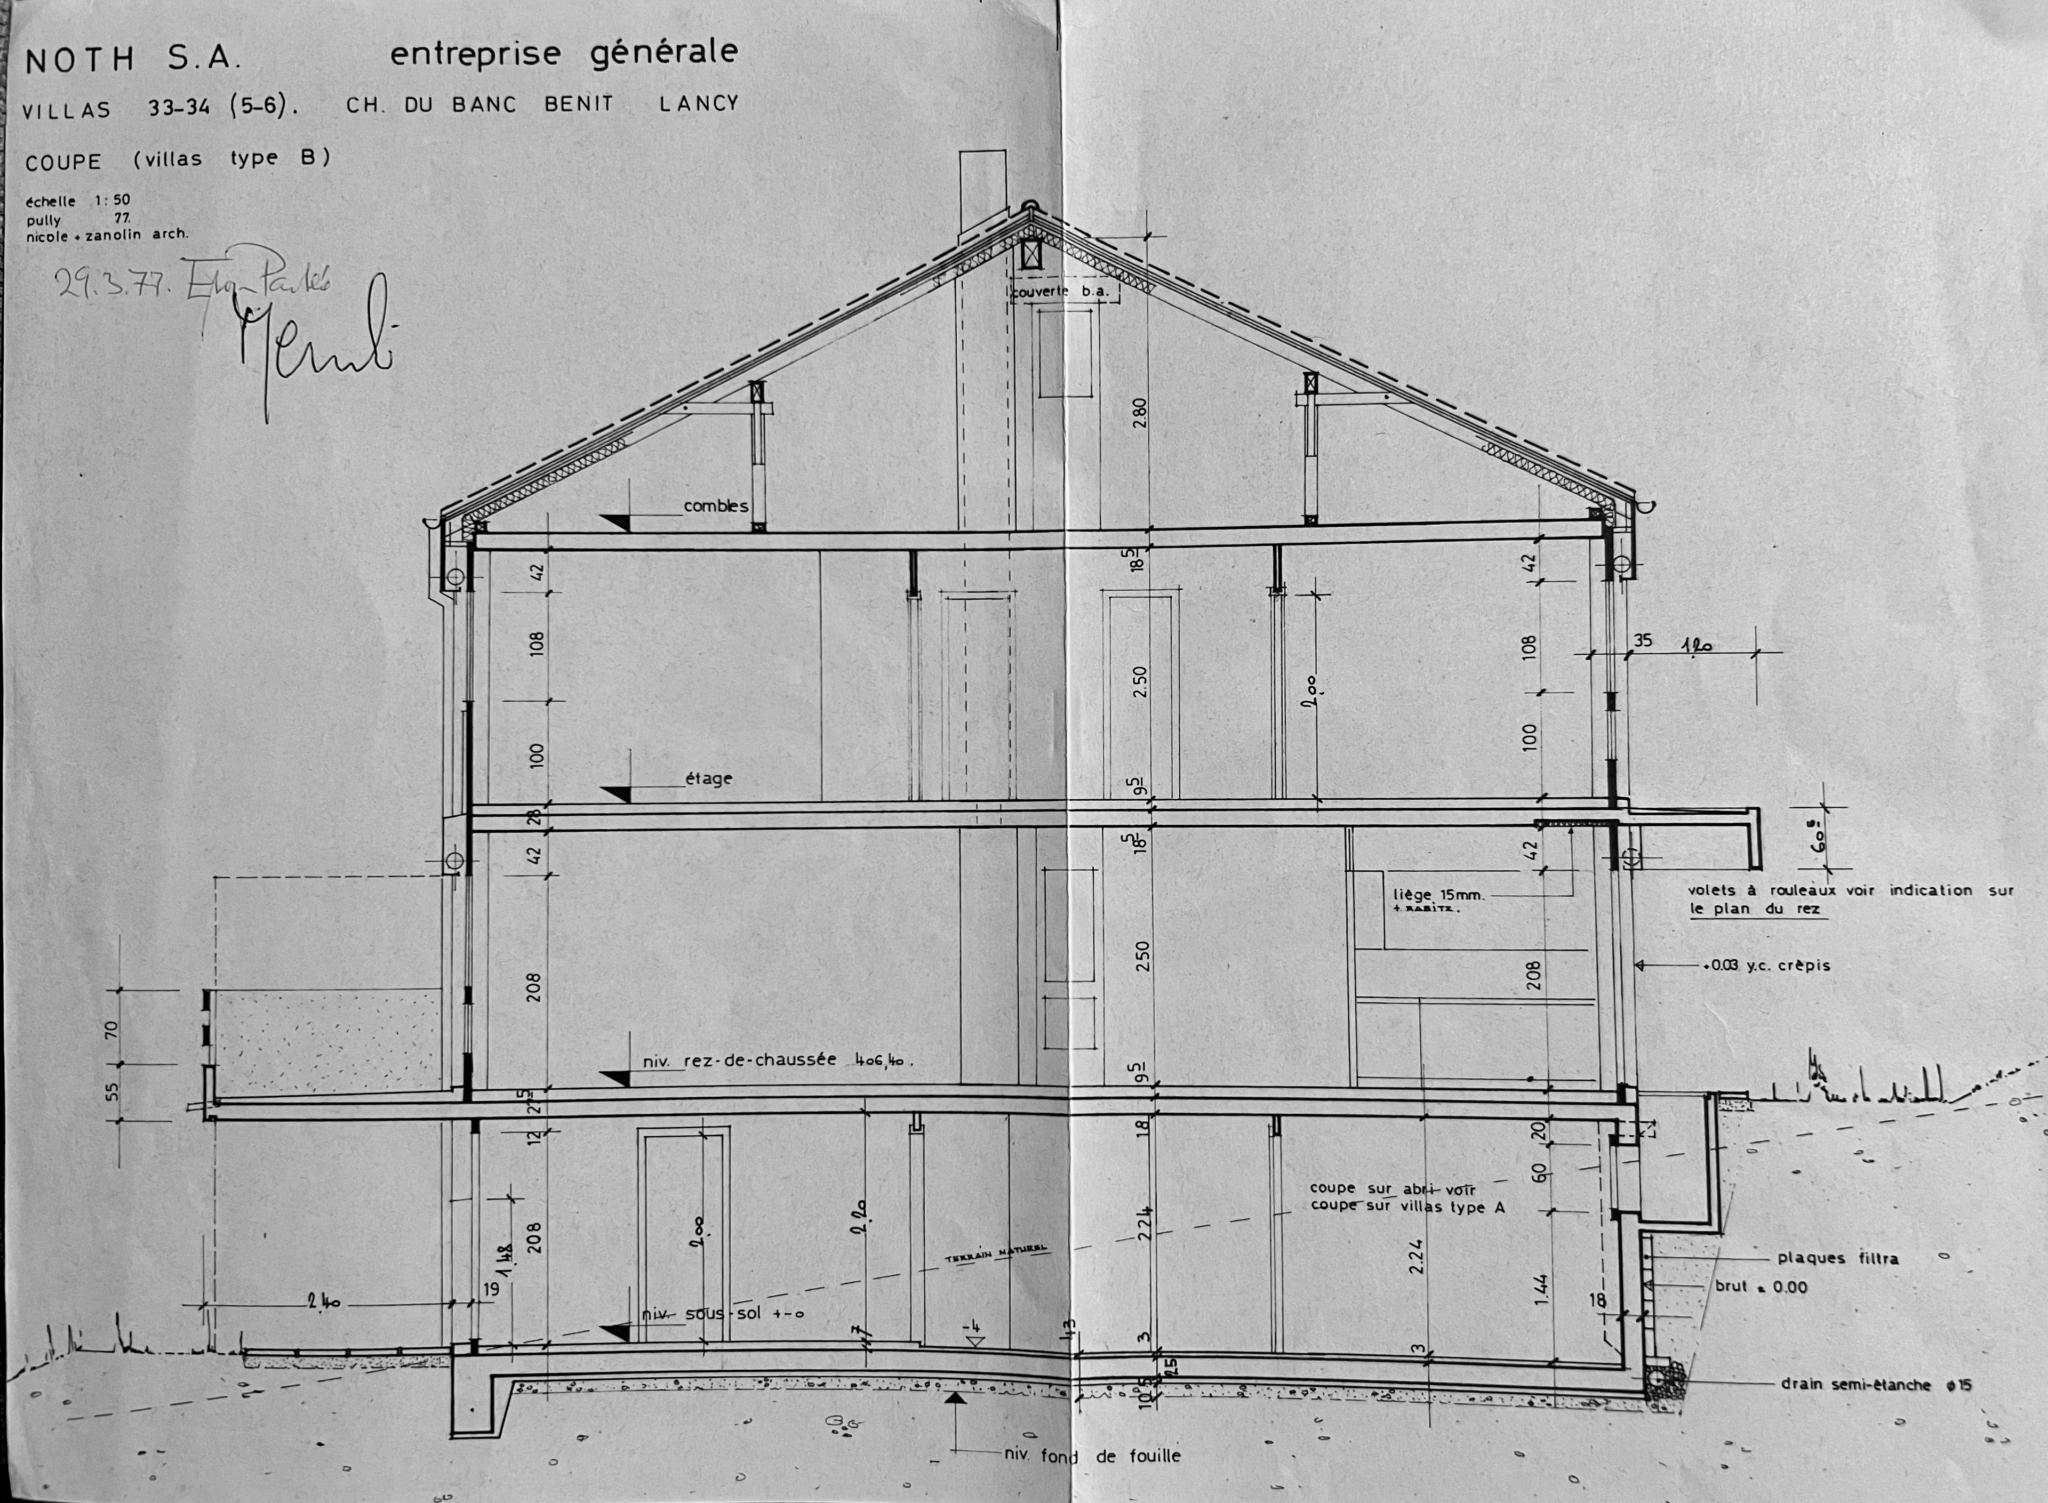 NOTH S.A. entreprise générale
VILLAS 33-34 (5-6). CH. DU BANC BENIT LANCY
COUPE (villas type B)
échelle 1:50
pully 77.
nicole + zanolin arch.
29.3.77.
couverte b.a.
2.80
combles
42
18⁵
42
108
108
35 1.20
2.50
2.00
100
100
étage
9⁵
28
60⁵
42
18⁵
42
liège 15mm.
+ RABITZ.
volets à rouleaux voir indication sur
le plan du rez
+0.03 y.c. crèpis
208
250
208
70
niv. rez-de-chaussée 406,40.
9⁵
55
27⁵
12
18
20
60
coupe sur abri voir
coupe sur villas type A
2.00
2.20
2.24
208
1.48
TERRAIN NATUREL
2.24
1.44
plaques filtra
brut = 0.00
2.40
19
18
niv. sous-sol +-0
7
-4
43
3
3
25
10⁵
drain semi-étanche ø15
niv. fond de fouille